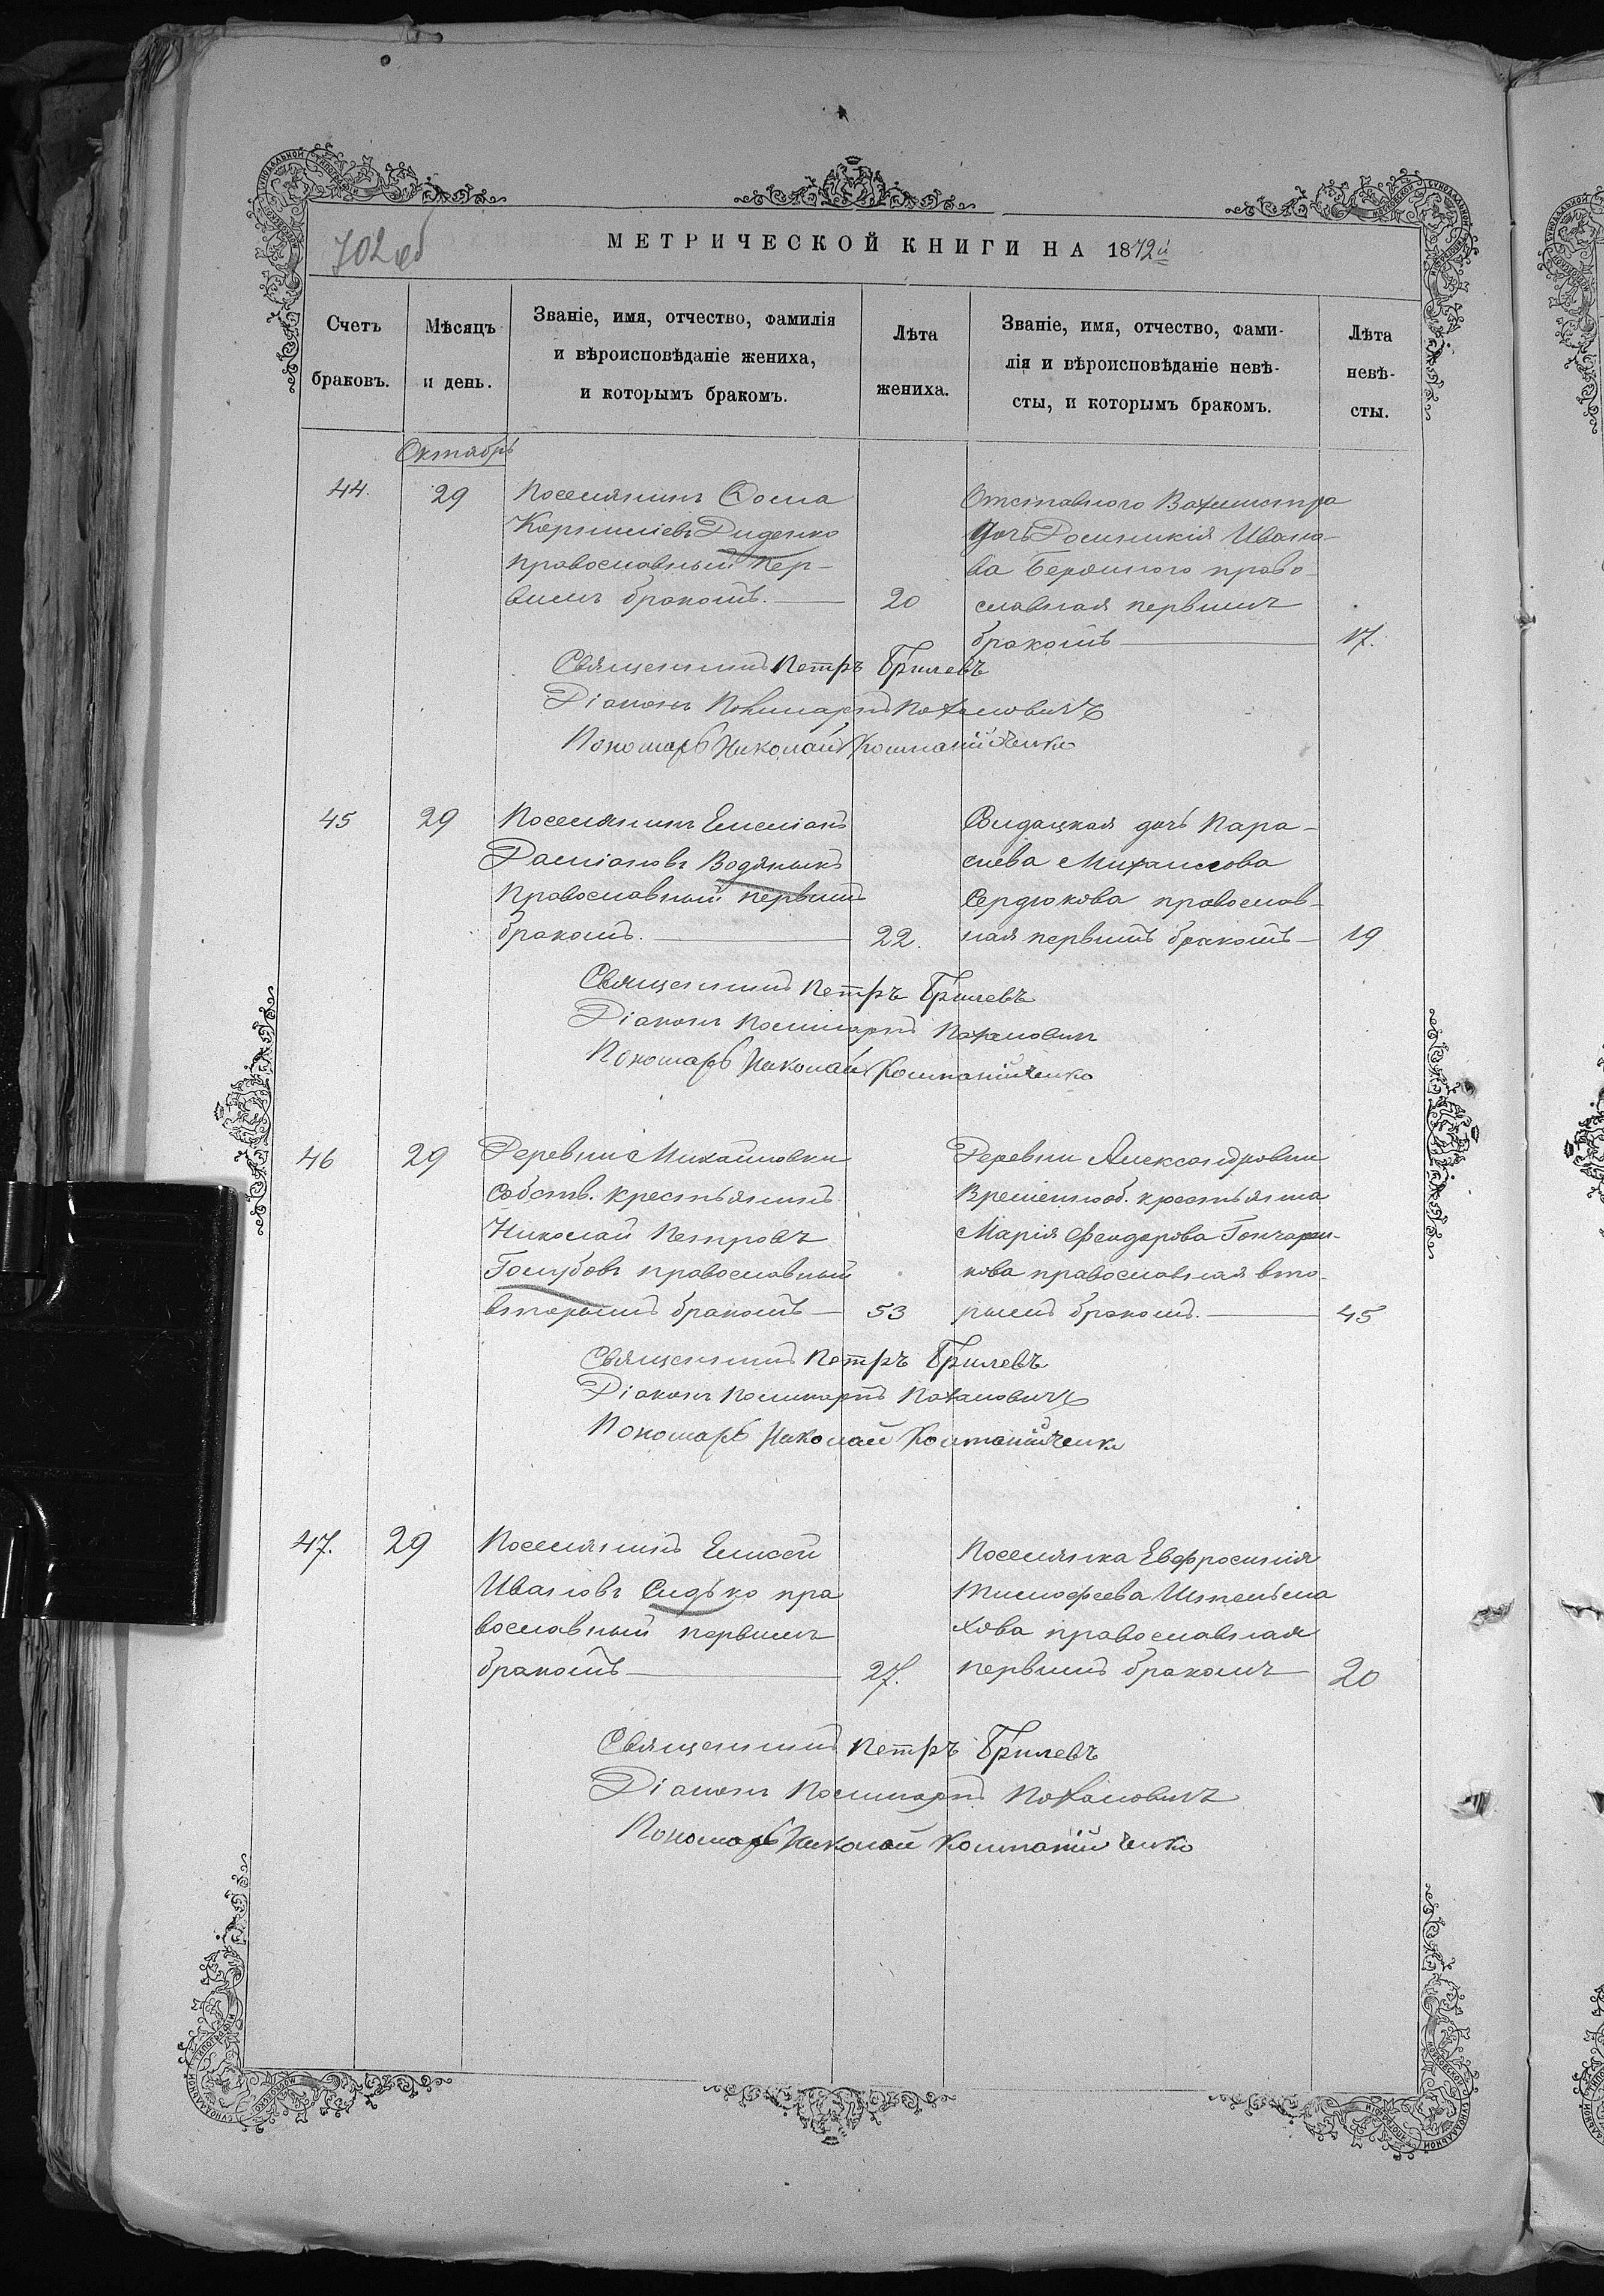 702 об
МЕТРИЧЕСКОЙ КНИГИ НА 1872й
Счетъ браковъ.
Мѣсяцъ и день.
Званіе, имя, отчество, фамилія
и вѣроисповѣданіе жениха,
и которымъ бракомъ.
Лѣта жениха.
Званіе, имя, отчество, фами-
лія и вѣроисповѣданіе невѣ-
сты, и которымъ бракомъ.
Лѣта невѣ-
сты.
Октябрь
44. 29
Поселянинъ Ѳома
Корниліевъ Диденко
православный пер-
вымъ бракомъ. 20
Отставного Вахмистра
дочь Домникія Ивано-
ва православная первымъ
бракомъ 17.
Священникъ Петръ Брилевъ
Діаконъ Поликарпъ Пахаловичъ
Пономарь Николай Компанійченко
45 29
Поселянинъ Емеліанъ
Даміановъ Водяныкъ
Православный первымъ
бракомъ. 22.
Солдацкая дочь Пара-
скева Михаилова
Сердюкова православ-
ная первымъ бракомъ 19
Священникъ Петръ Брилевъ
Діаконъ Поликарпъ Пахаловичъ
Пономарь Николай Компанійченко
46 29
Деревни Михайловки
Собств. крестьянинъ
Николай Петровъ
Голубовъ православный
вторымъ бракомъ 53
Деревни Александровки
Временнооб. крестьянка
Марія Феодорова Гончарен-
кова православная вто-
рымъ бракомъ. 45
Священникъ Петръ Брилевъ
Діаконъ Поликарпъ Пахаловичъ
Пономарь Николай Компанійченко
47. 29
Поселянинъ Елисей
Ивановъ Сидько пра
вославный первымъ
бракомъ 27.
Поселянка Евфросинія
Тимофеева
хова православная
первымъ бракомъ 20
Священникъ Петръ Брилевъ
Діаконъ Поликарпъ Пахаловичъ
Пономарь Николай Компанійченко